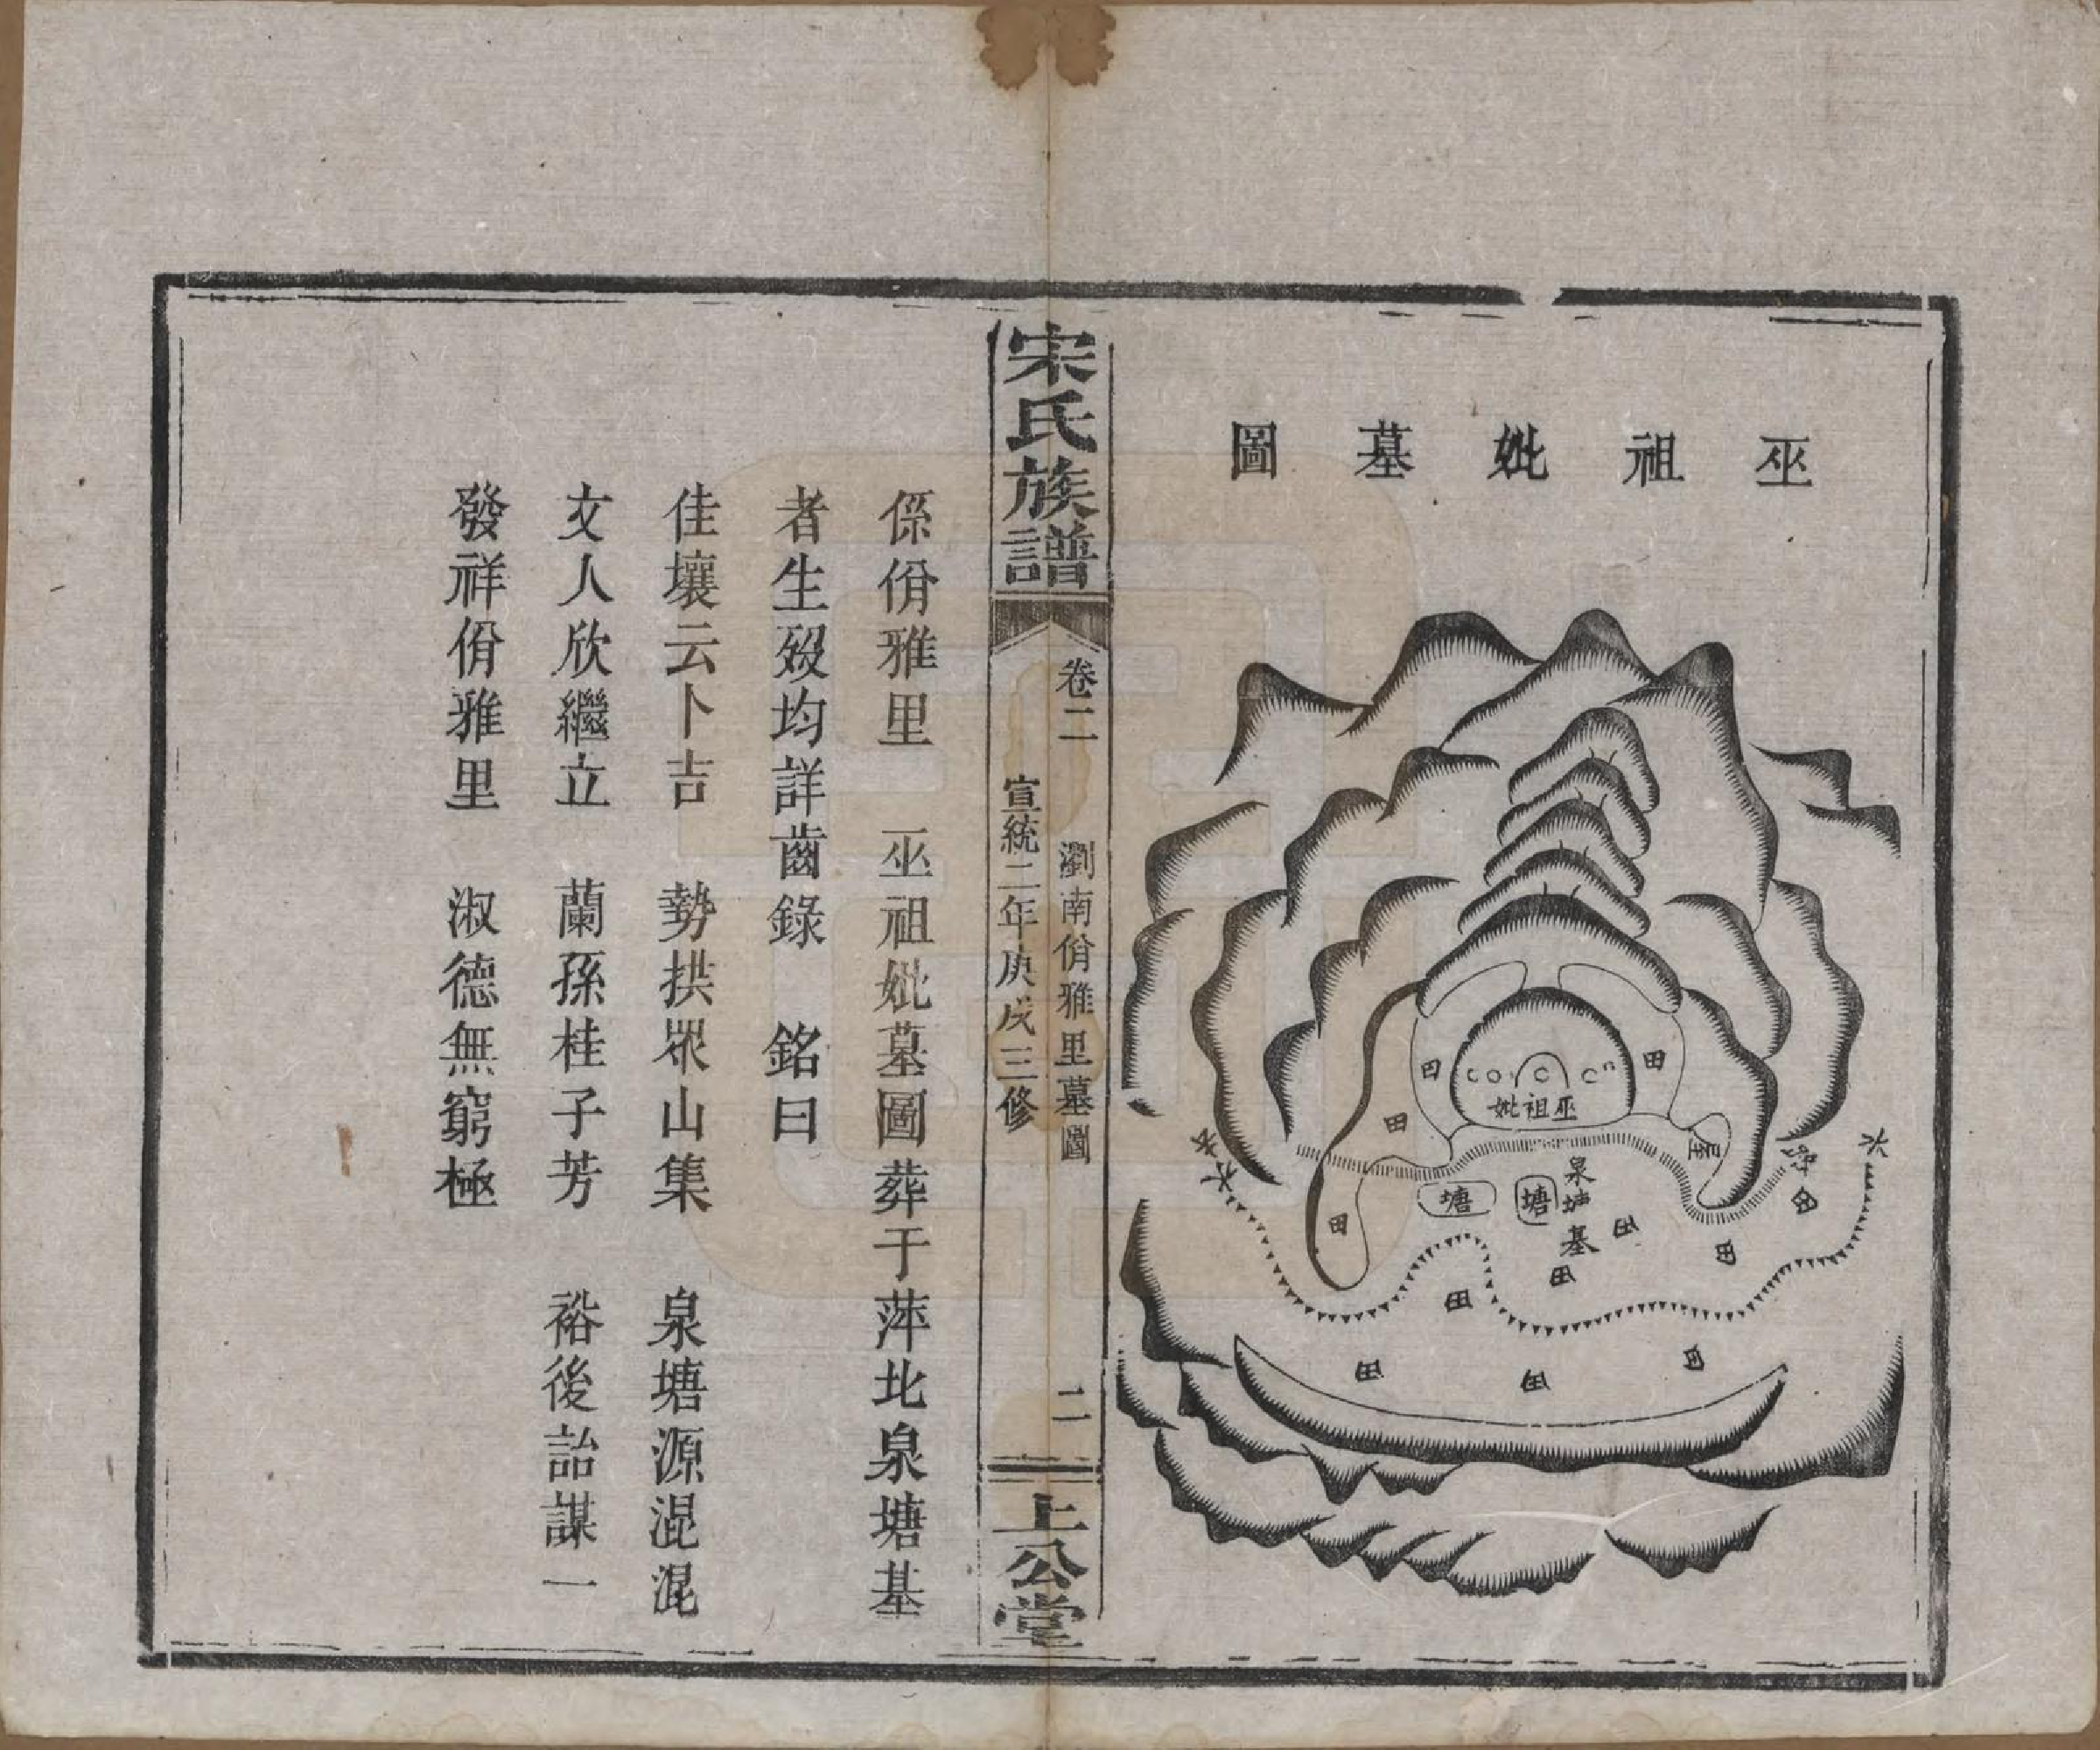 巫祖妣墓圖
田
田
巫祖妣
田
屋
田
田
塘
塘
泉塘基
田
田
田
田
田
田
田
水
水
宋氏族譜
卷二 瀏南佾雅里墓圖 二
宣統二年庚戌三修
上公堂
係佾雅里 巫祖妣墓圖葬于萍北泉塘基
者生歿均詳齒錄 銘曰
佳壤云卜吉 勢拱眾山集 泉塘源混混
文人欣繼立 蘭孫桂子芳 裕後詒謀一
發祥佾雅里 淑德無窮極